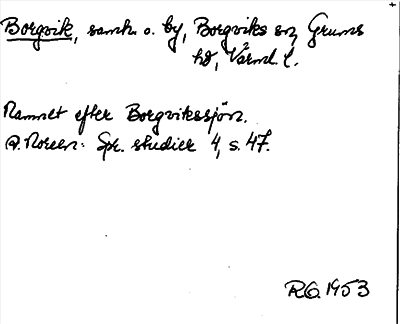 Borgvik, samh. o. by, Borgviks sn, Grums
hd, Värml. l.
Namnet efter Borgvikssjön.
A. Noreen: Spr. studier 4, s. 47.
R.G. 1953